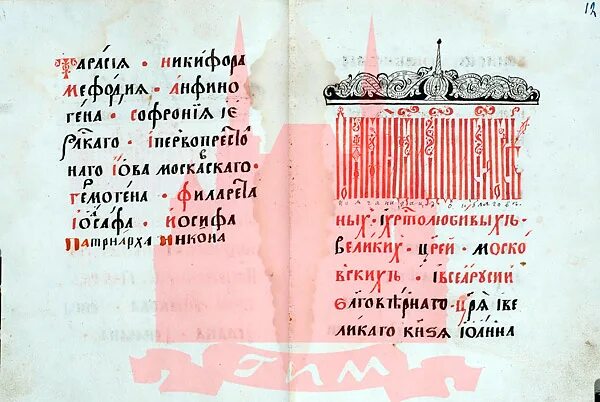 12
Тарасїа · Никифора
Меѳодїа · Анѳино
гена · Софронїа Іе
рл҃каго · Іпервопрест҃о
наго Іѡва московскаго ·
Гермогена · Филарета
Іѡасафа · Іѡсифа
Патриарха Никона
ных · Іхрт҃олюбивыхъ ·
Великих · Цр҃ей · моско
вскихъ · Івсеарусии
Благовѣрнаго · цр҃ѧ Іве
ликаго кн҃зѧ Іѡанна
ГИМ